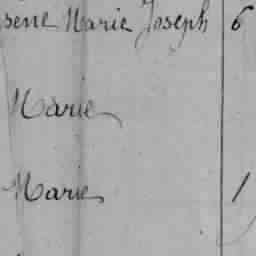 sene Marie Joseph 6
Marie
Marie 1